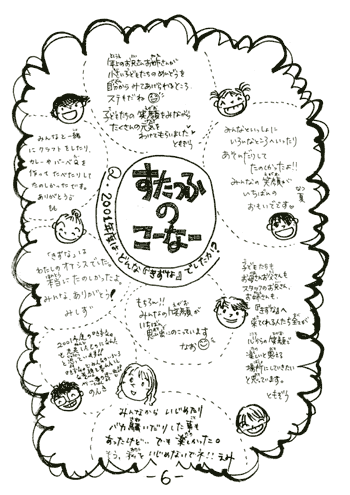 すたっふ
の
こーなー
Q.2001年度はどんな『きずな』でしたか!?
年上のお兄さんお姉さんが
小さい子どもたちのめんどうを
自分からみてあげられるところ
ステキだね
子どもたちの笑顔をみながら
たくさんの元気を
わけてもらいました
ともぞう
みんなと一緒
にクラフトをしたり、
カレーやパンペンを
作ってたべたりして
たのしかったです。
ありがとう
みんなといっしょに
いろーんなところへいったり
あそんだりして
たのしかったよ!!
みんなの笑顔が
いちばんの
おもいでです
なつ
『きずな』は
わたしのオアシスでした。
本当にたのしかったよ。
みんな、ありがとう!
みしず
もちろん!!
みんなの笑顔が
いちばん
印象にのこっています
なお
子どもたちも
お母さんお父さんも
スタッフのお兄さん、
お姉さんも、
『きずな』へ
来てくれる人たち全員が
心からの笑顔で
楽しいと思える
場所にしていきたい
と思っています。
ともぞう
のんき
みんなから いじめたり
バカ騒いだりした事も
あったけど… でも楽しかった。
もう、私をいじめないでネ!! えみ
-6-